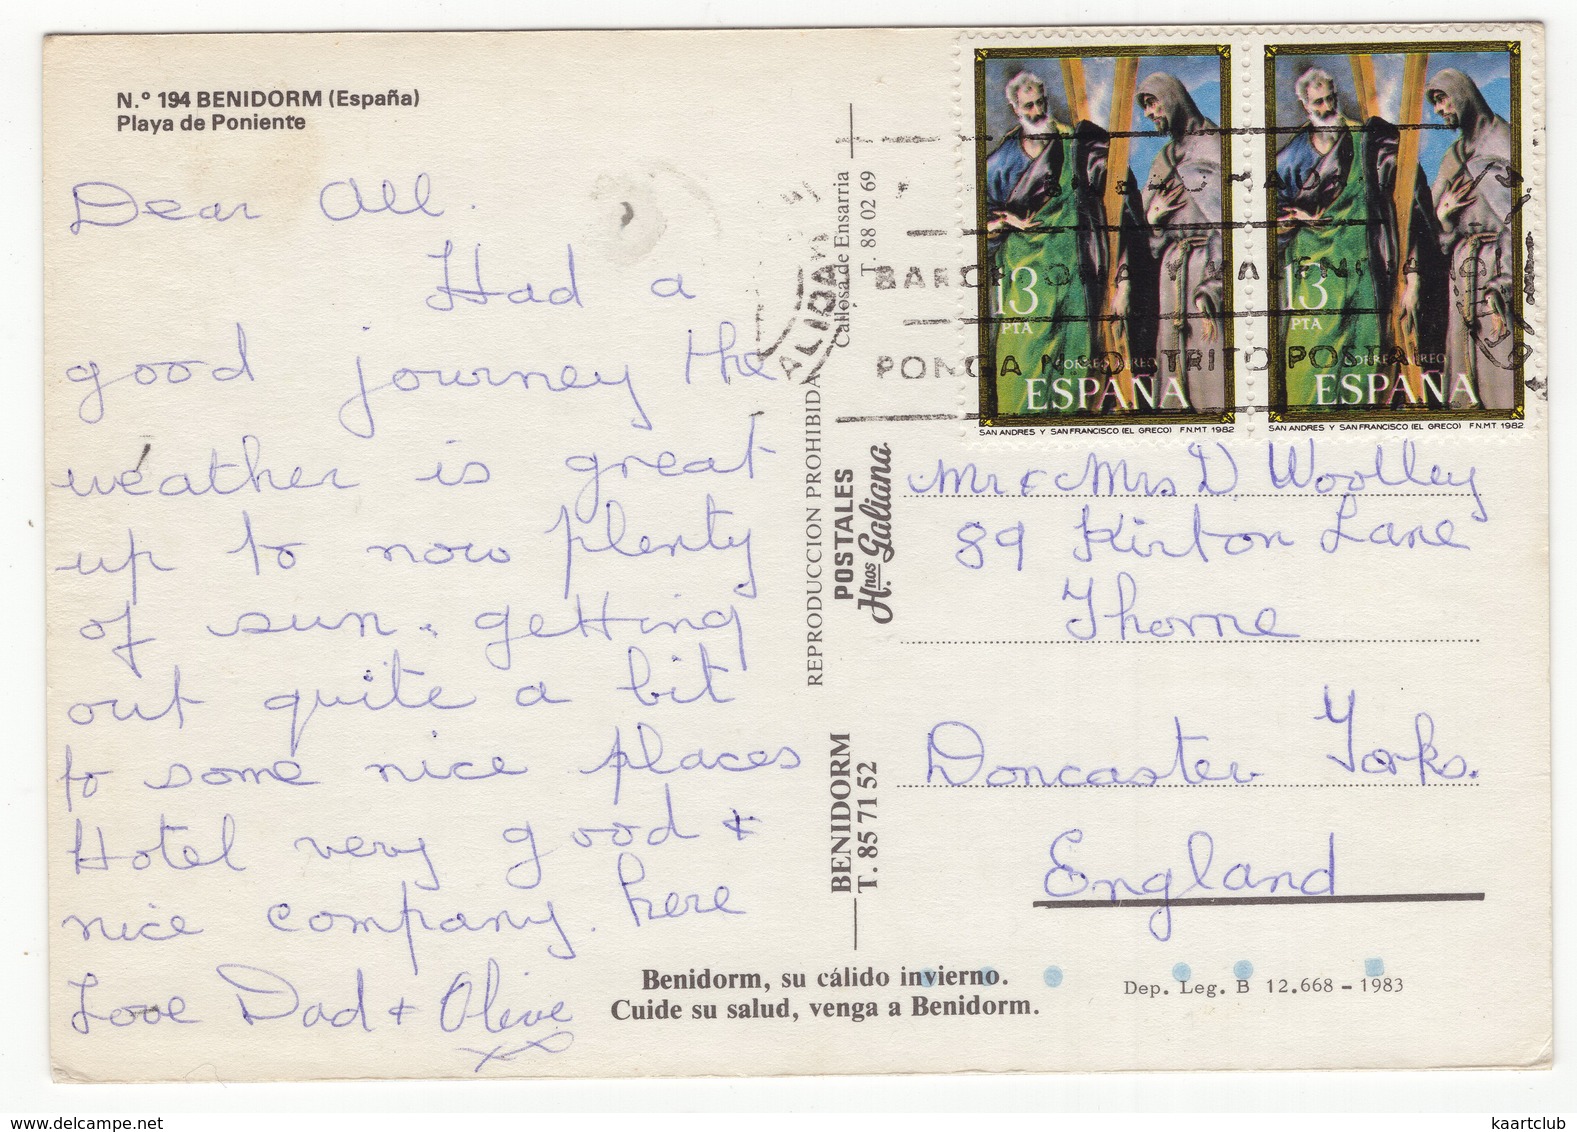 N.º 194 BENIDORM (España)
Playa de Poniente
Dear All.
Had a
good journey the
weather is great
up to now plenty
of sun. getting
out quite a bit
to some nice places
Hotel very good +
nice company. here
Love Dad + Olive
xx
Callosa de Ensarria
T. 88 02 69
REPRODUCCION PROHIBIDA
POSTALES
Hnos. Galiana
BENIDORM
T. 85 71 52
Benidorm, su cálido invierno.
Cuide su salud, venga a Benidorm.
13
PTA
CORREO AEREO
ESPAÑA
SAN ANDRES Y SAN FRANCISCO (EL GRECO) F.N.M.T. 1982
13
PTA
CORREO AEREO
ESPAÑA
SAN ANDRES Y SAN FRANCISCO (EL GRECO) F.N.M.T. 1982
BARCELONA Y VALENCIA
PONGA N.º DISTRITO POSTAL
Mr & Mrs D. Woolley
89 Kirton Lane
Thorne
Doncaster Yorks.
England
Dep. Leg. B 12.668 - 1983
kaartclub